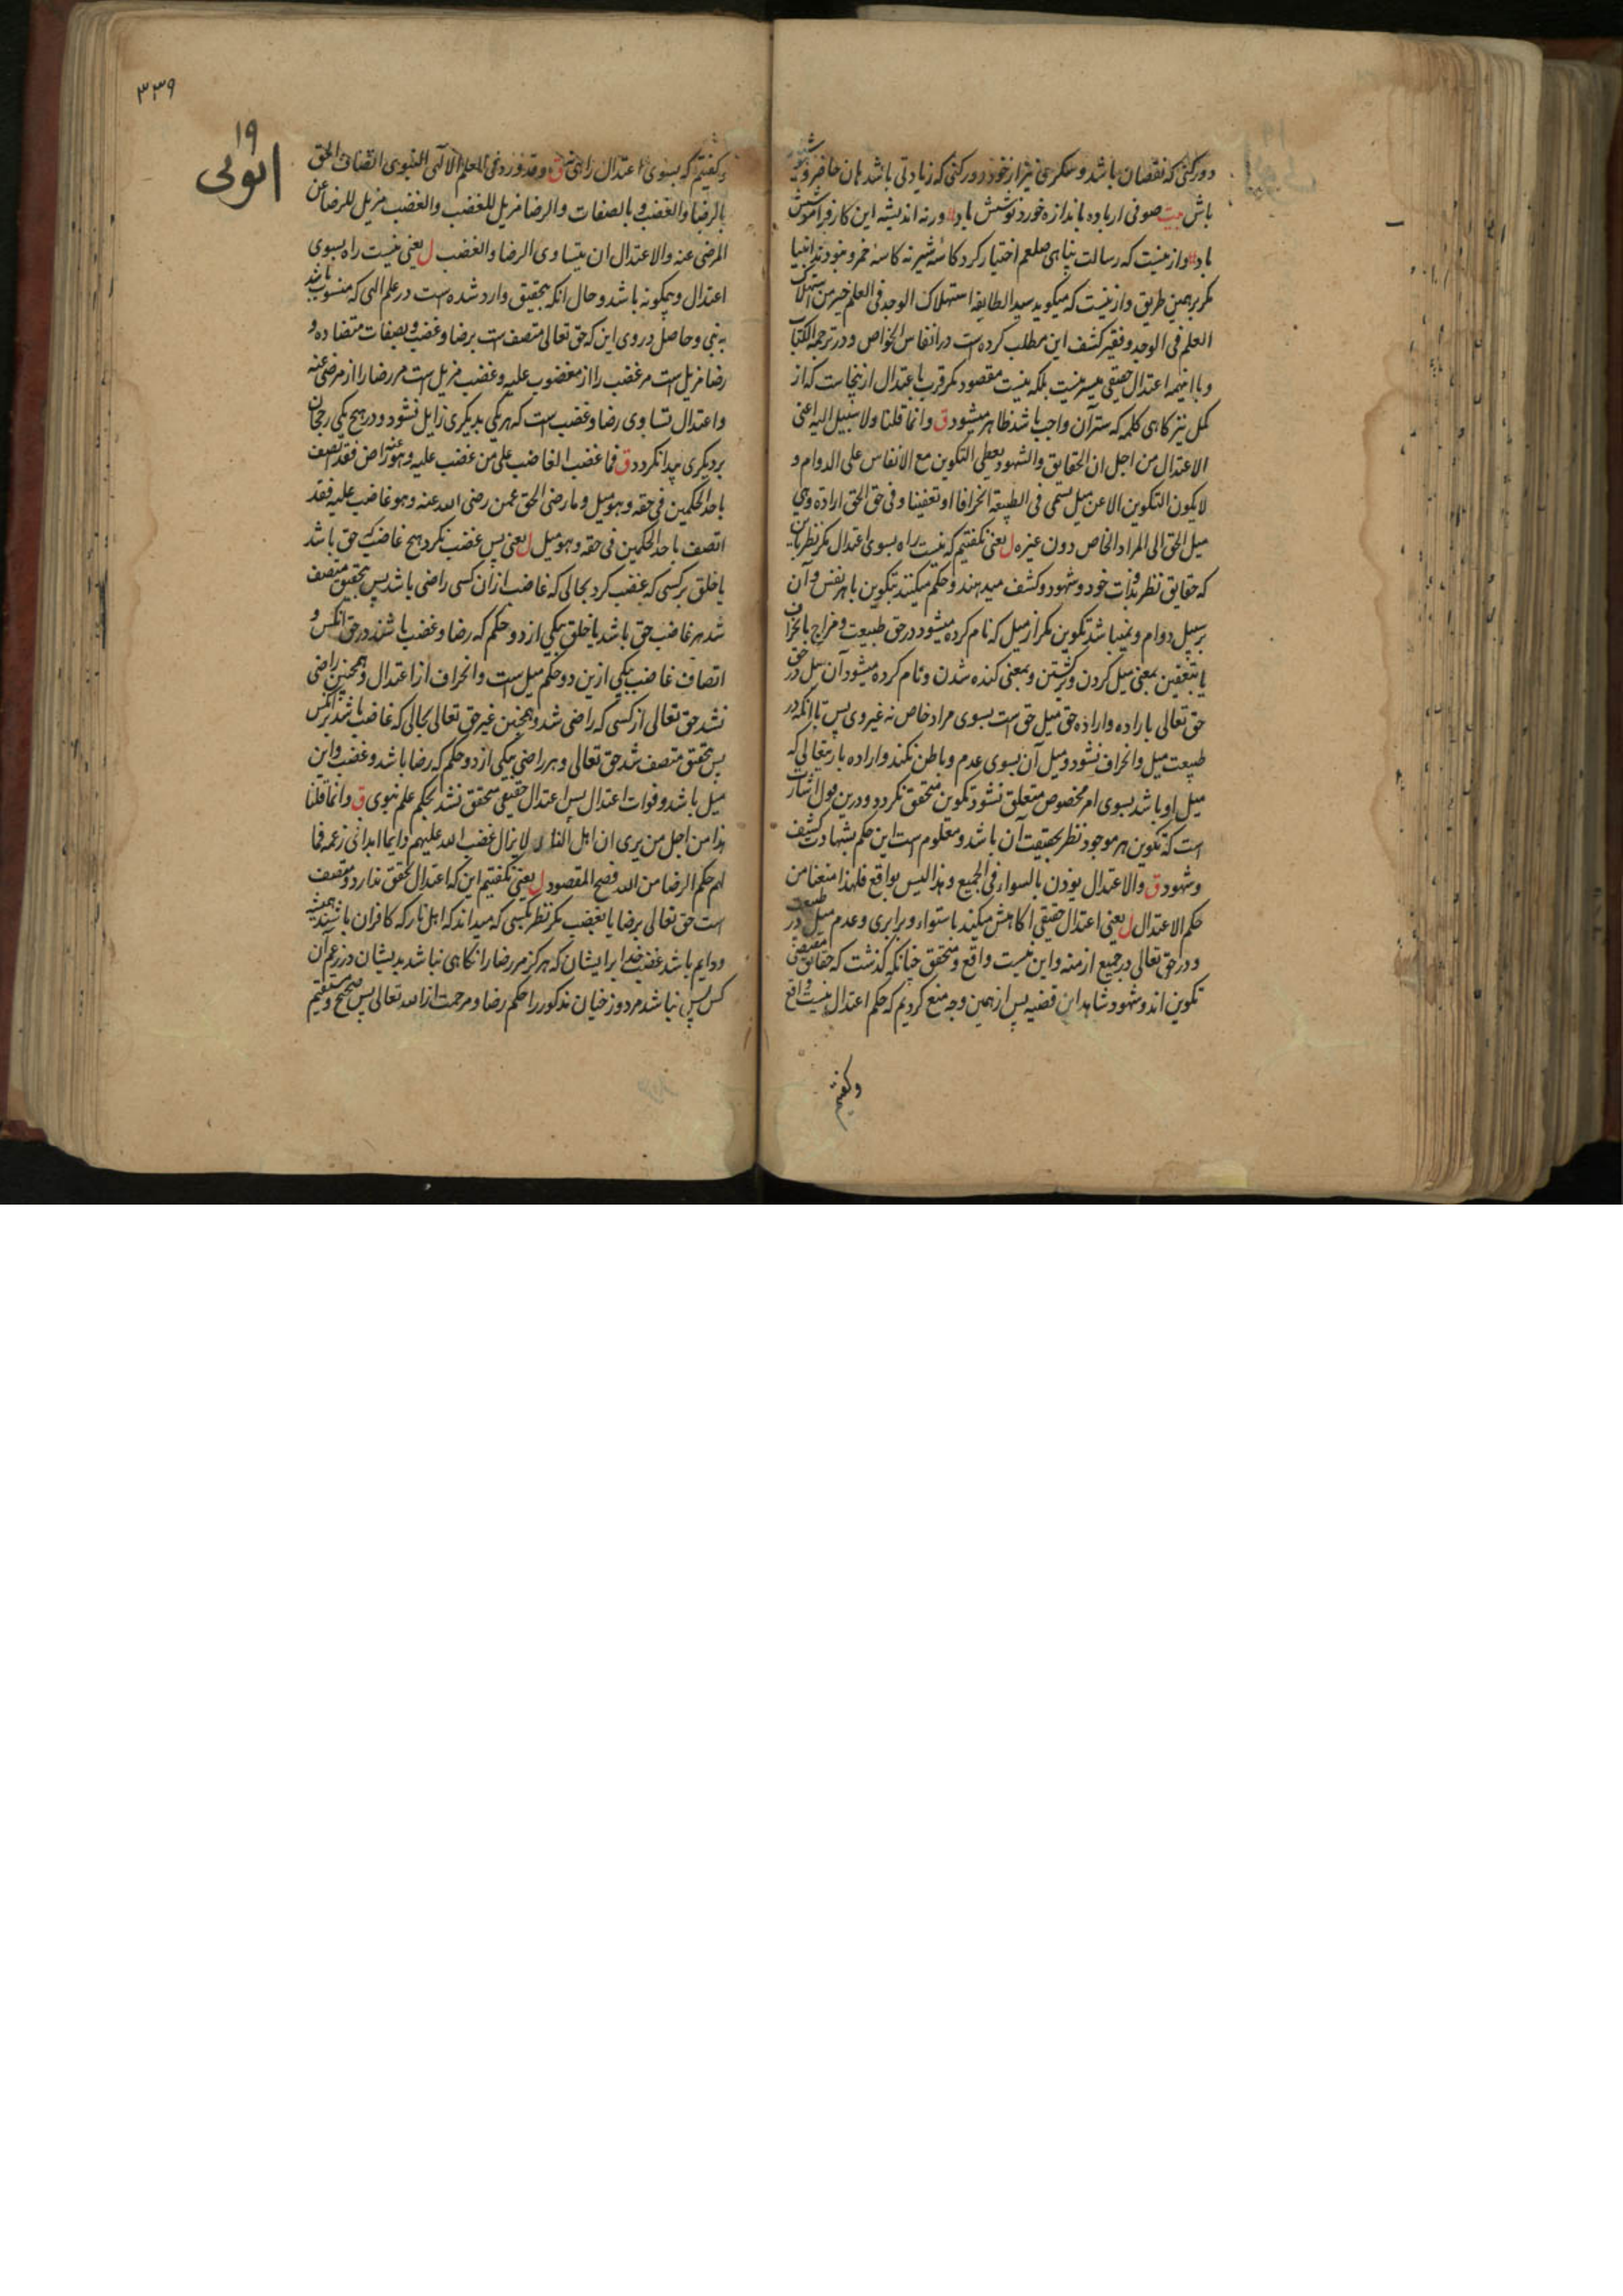 دور کنی که نقصان باشد و سکر می نیز از خود دور کنی که زیادتی باشد هان حاضر و
باش بیت صوفی ار باده باندازه خورد نوشش باد ورنه اندیشه این کار فراموشش
باد و ازینست که رسالت پناهی صلعم اختیار کرد کاسه شیر نه کاسه خمر و نبود انبیا
مگر بر همین طریق و ازینست که میگوید سید الطایفه استهلاک الوجد فی العلم خیر من استهلاک
العلم فی الوجد و فقیر کشف این مطلب کرده است در انفاس الخواص و در ترجمة الکتاب
و با اینهمه اعتدال حقیقی میسر نیست بلکه نیست مقصود مگر قرب باعتدال ازینجاست که از
کمل نیز گاهی کلمه که ستر آن واجب باشد ظاهر میشود ق وانما قلنا ولا سبیل الیه اعنی
الاعتدال من اجل ان الحقایق والشهود یعطی التکوین مع الانفاس علی الدوام و
لا یکون التکوین الا عن میل یسمی فی الطبیعة انحرافا او تعفینا و فی حق الحق ارادة وهی
میل الحق الی المراد الخاص دون غیره ل یعنی نگفتیم که نیست راه بسوی اعتدال مگر نظر باین
که حقایق نظر بذات خود و شهود و کشف میدهند و حکم میکنند بتکوین با هر نفس و آن
بر سبیل دوام و نمیباشد تکوین مگر از میل که نام کرده میشود در حق طبیعت و مزاج بانحراف
یا بتعفین بمعنی میل کردن و برگشتن و بمعنی گنده شدن و نام کرده میشود آن میل در حق
حق تعالی باراده و اراده حق میل حق است بسوی مراد خاص نه غیر وی پس تا آنکه در
طبیعت میل و انحراف نشود و میل آن بسوی عدم و باطن نکند و اراده باریتعالی که
میل او باشد بسوی امر مخصوص متعلق نشود تکوین متحقق نگردد و درین قول اشارت
است که تکوین هر موجود نظر بحقیقت آن باشد و معلوم است این حکم بشهادت کشف
و شهود ق والاعتدال یوذن بالسواء فی الجمیع وهذا لیس بواقع فلهذا منعنا من
حکم الاعتدال ل یعنی اعتدال حقیقی آگاهش میکند باستواء و برابری و عدم میل در طبیعت
و در حق تعالی در جمیع ازمنه و این نیست واقع و متحقق چنانکه گذشت که حقایق مقتضی
تکوین اند و شهود شاهد این قضیه پس از همین وجه منع کردیم که حکم اعتدال نیست واقع
وگفتیم
٣٣٩
١٩
ایوبی
وگفتیم که بسوی اعتدال راهی نیست ق وقد ورد فی العلم الالهی النبوی اتصاف الحق
بالرضا والغضب و بالصفات والرضا مزیل للغضب والغضب مزیل للرضا عن
المرضی عنه والاعتدال ان یتساوی الرضا والغضب ل یعنی نیست راه بسوی
اعتدال و چگونه باشد و حال آنکه بتحقیق وارد شده است در علم الهی که منسوب باشد
به نبی و حاصل در وی این که حق تعالی متصف است برضا و غضب و بصفات متضاده و
رضا مزیل است مر غضب را از مغضوب علیه و غضب مزیل است مر رضا را از مرضی عنه
و اعتدال تساوی رضا و غضب است که هر یکی بدیگری زایل نشود و در هیچ یکی رجحان
بر دیگری پیدا نگردد ق فما غضب الغاضب علی من غضب علیه وهو عنه راض فقد اتصف
باحد الحکمین فی حقه وهو میل وما رضی الحق عمن رضی الله عنه وهو غاضب علیه فقد
اتصف باحد الحکمین فی حقه وهو میل ل یعنی پس غضب نکرد هیچ غاضب که حق باشد
یا خلق بر کسی که غضب کرد بحالی که غاضب ازان کسی راضی باشد پس بتحقیق متصف
شد هر غاضب حق باشد یا خلق بیکی از دو حکم که رضا و غضب باشند در حق آنکس و
اتصاف غاضب بیکی ازین دو حکم میل است و انحراف از اعتدال و همچنین راضی
نشد حق تعالی از کسی که راضی شد و همچنین غیر حق تعالی بحالی که غاضب باشد بر آنکس
پس بتحقیق متصف شد حق تعالی و هر راضی بیکی از دو حکم که رضا باشد و غضب و این
میل باشد و فوات اعتدال پس اعتدال حقیقی متحقق نشد بحکم علم نبوی ق وانما قلنا
هذا من اجل من یری ان اهل النار لا یزال غضب الله علیهم دایما ابدا فی زعمه فما
لهم حکم الرضا من الله فصح المقصود ل یعنی نگفتیم این که اعتدال تحقق ندارد و متصف
است حق تعالی برضا یا بغضب مگر نظر بکسی که میداند که اهل نار که کافران باشند همیشه
و دایم باشد غضب خدا بر ایشان که هرگز مر رضا را گاهی نباشد بدیشان در زعم آن
کس پس نباشد مر دوزخیان مذکور را حکم رضا و مرحمت از الله تعالی پس صحیح و مستقیم